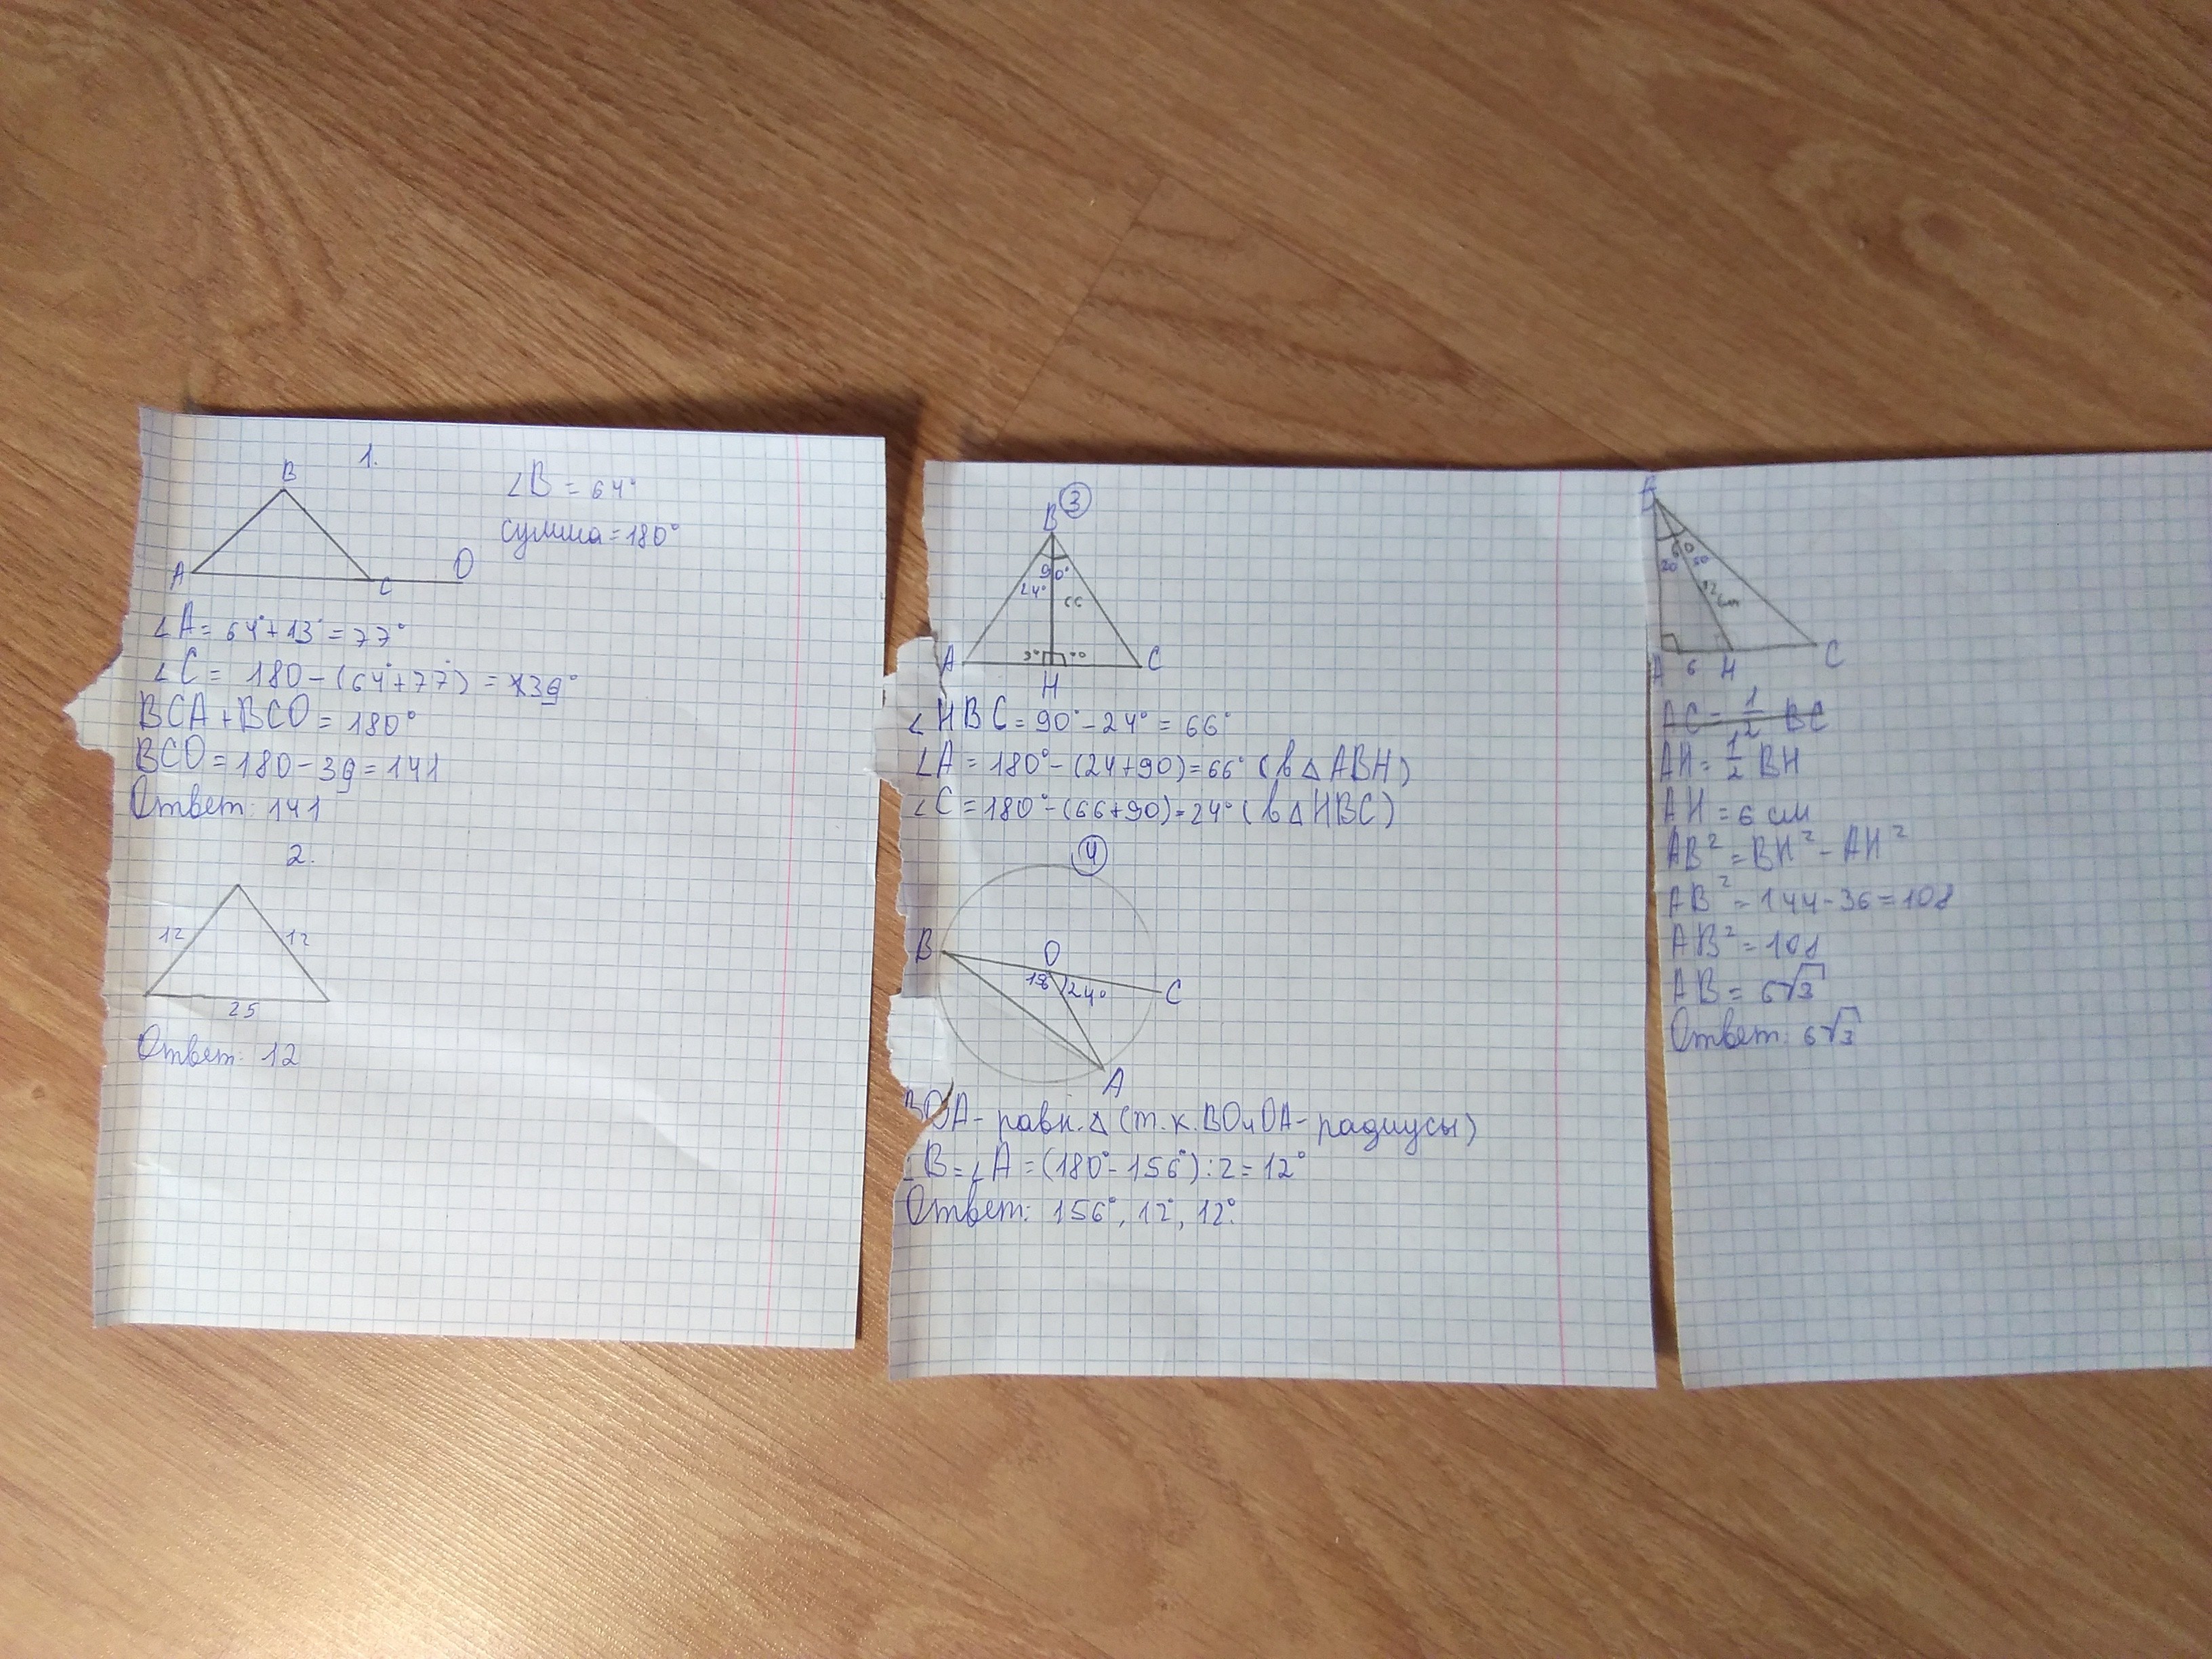 1.
B
∠B = 64°
сумма = 180°
A
C
O
∠A = 64°+13° = 77°
∠C = 180 - (64°+77°) = 39°
BCA + BCO = 180°
BCO = 180 - 39 = 141
Ответ: 141
2.
12
12
25
Ответ: 12
3
B
90°
24°
66
A
H
C
∠HBC = 90° - 24° = 66°
∠A = 180° - (24+90) = 66° (в △ ABH)
∠C = 180° - (66+90) = 24° (в △ HBC)
4
B
O
156
24°
C
A
BOA - равн. △ (т.к. BO и OA - радиусы)
∠B = ∠A = (180° - 156°) : 2 = 12°
Ответ: 156°, 12°, 12°.
60
12 см
A
6
H
C
AC = 1/2 BC
AH = 1/2 BH
AH = 6 см
AB² = BH² - AH²
AB² = 144 - 36 = 108
AB² = 108
AB = 6√3
Ответ: 6√3